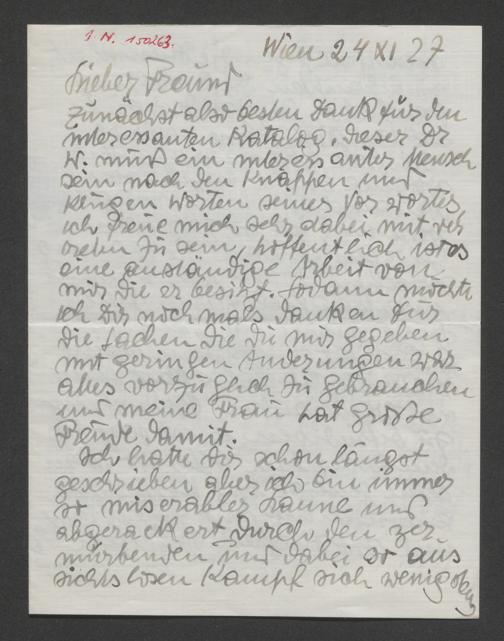 I. N. 150263.
Wien 24 XI 27
Lieber Freund
Zunächst also besten Dank für den
interessanten Katalog. Dieser Dr
W. muß ein interessanter Mensch
sein nach den knappen und
klugen Worten seines Vorwortes
ich freue mich sehr dabei mit
zu sein, hoffentlich ist es
eine anständige Arbeit von
mir die er besitzt. Sodann möchte
ich Dir nochmals danken für
die Sachen die Du mir gegeben
mit geringen Änderungen war
alles vorzüglich zu gebrauchen
und meine Frau hat große
Freude damit.
Ich hätte Dir schon längst
geschrieben aber ich bin immer
so miserabler Laune und
abgerackert durch den zer-
mürbenden und dabei so aus
sichtslosen Kampf sich wenigstens